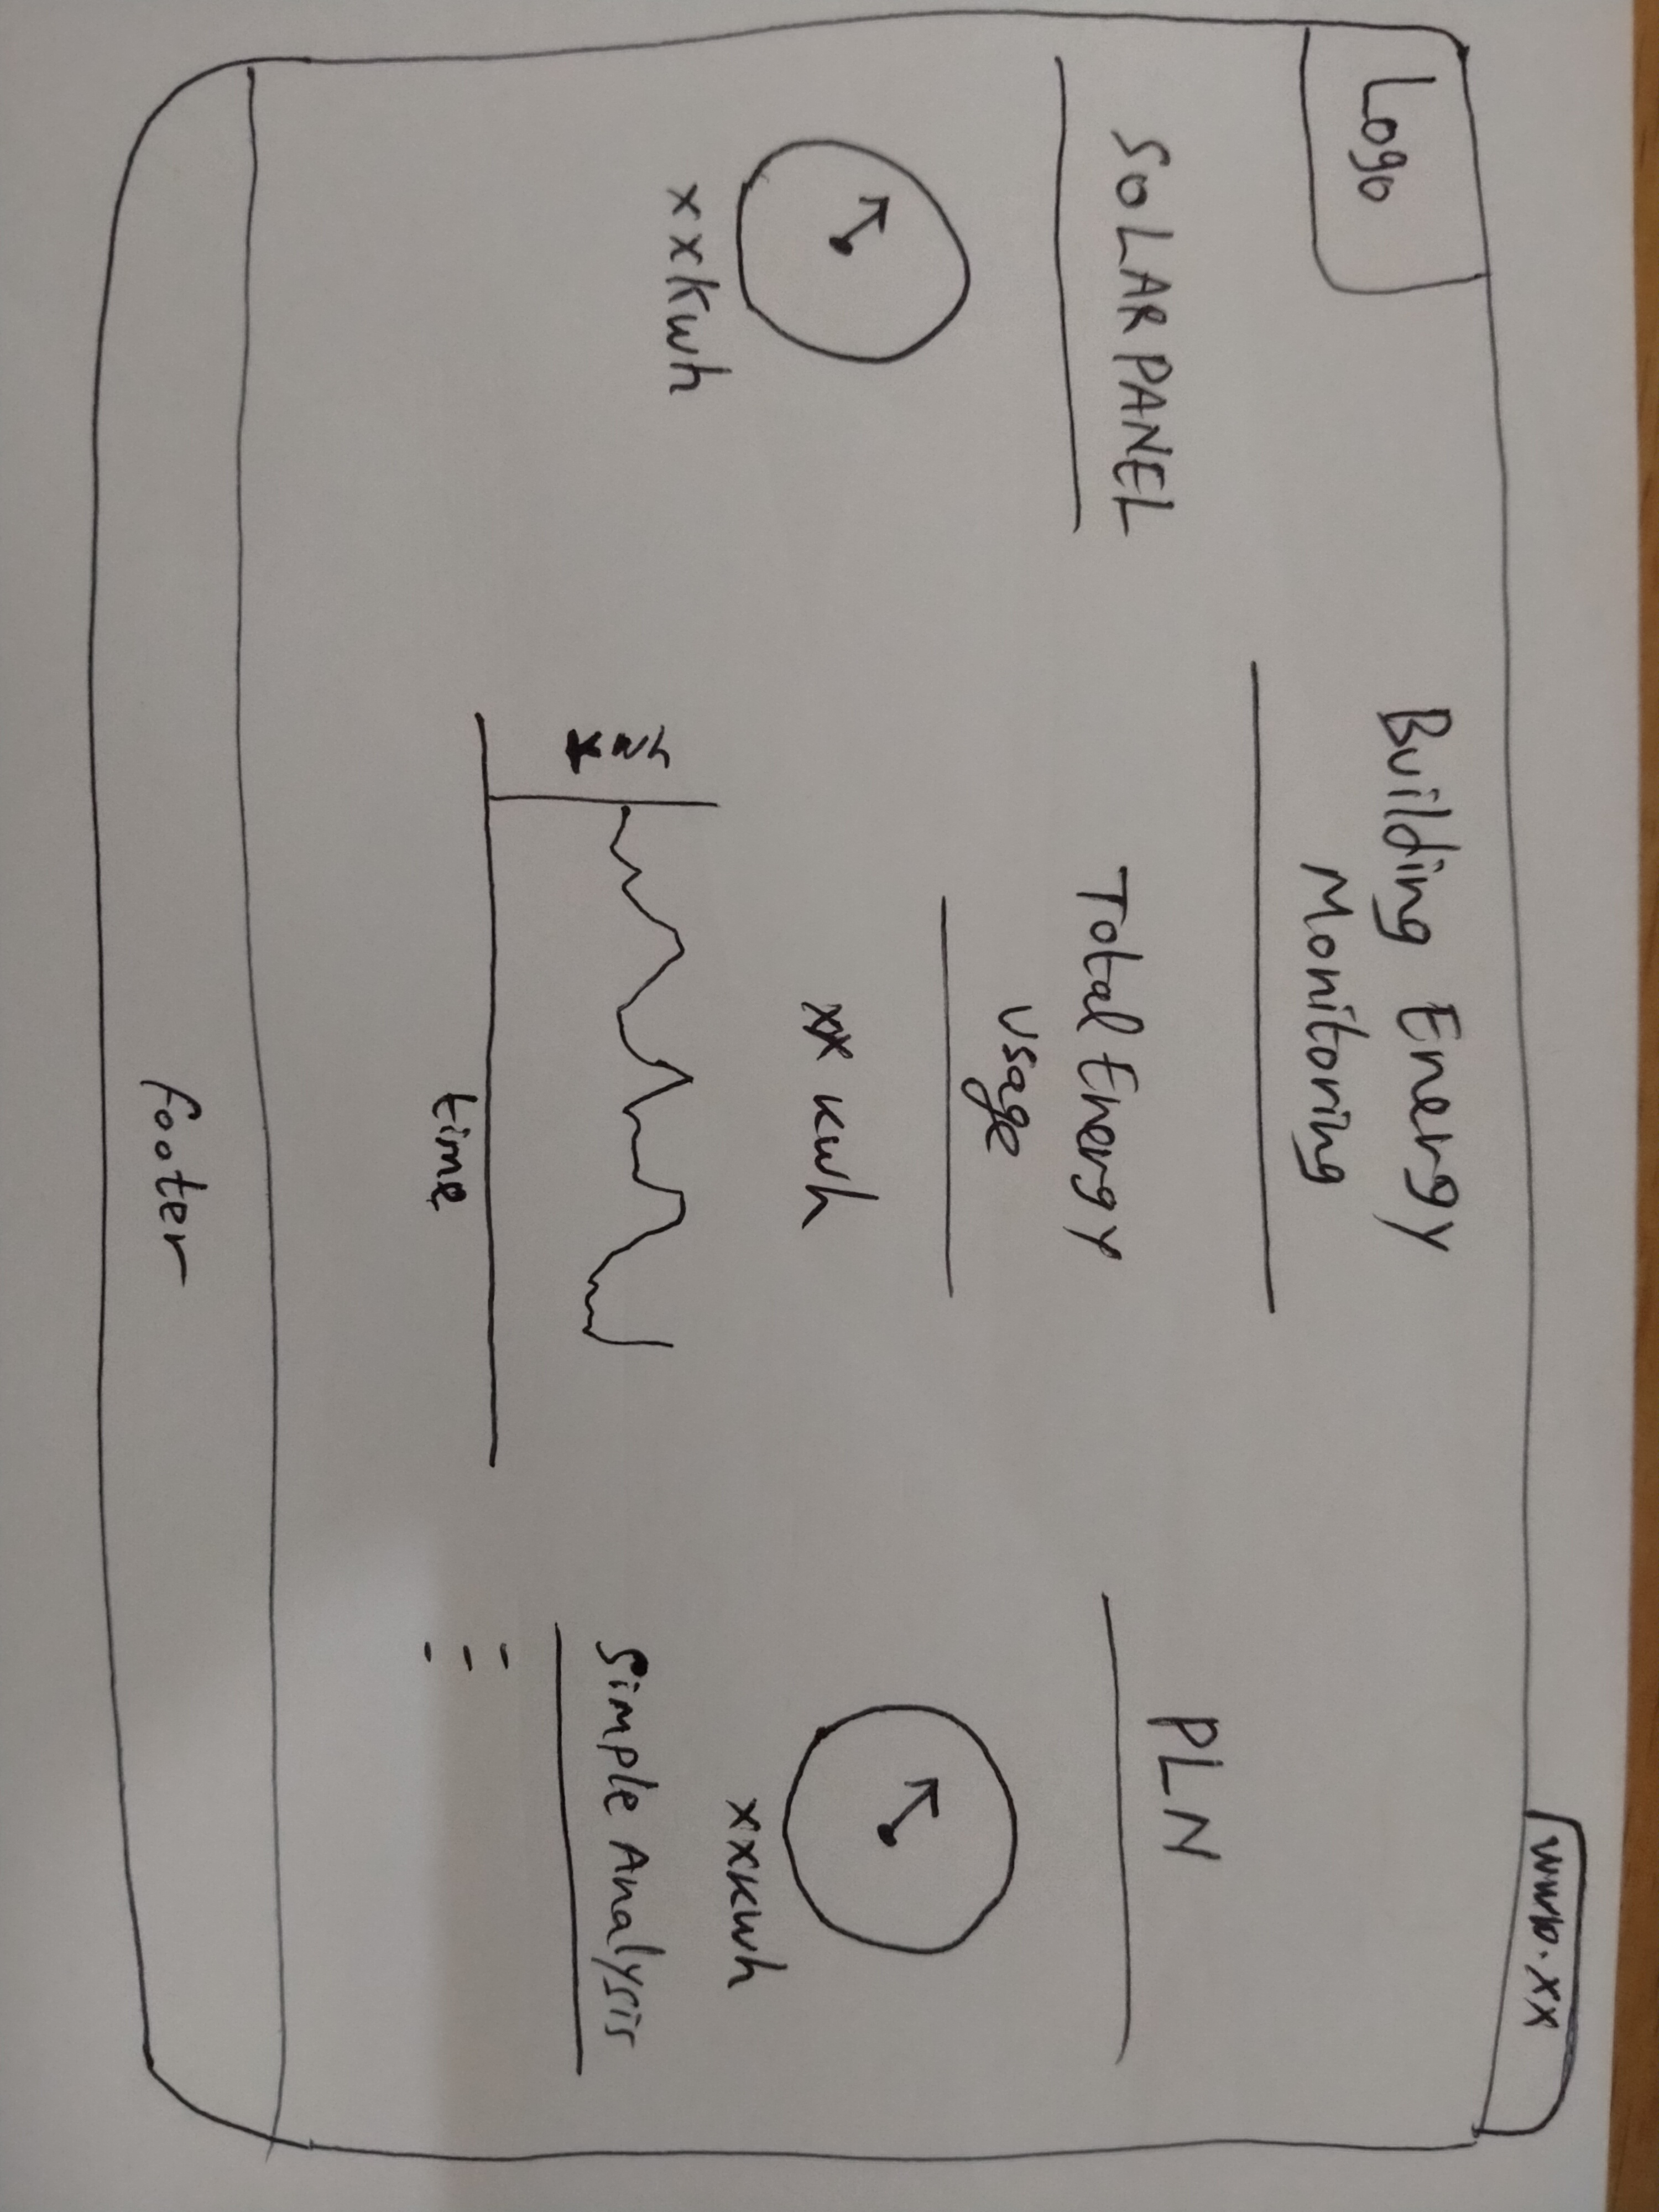 www.xx
Logo
Building Energy
Monitoring
SOLAR PANEL
xxkwh
Total Energy
Usage
xx kwh
kwh
time
PLN
xxkwh
Simple Analysis
footer